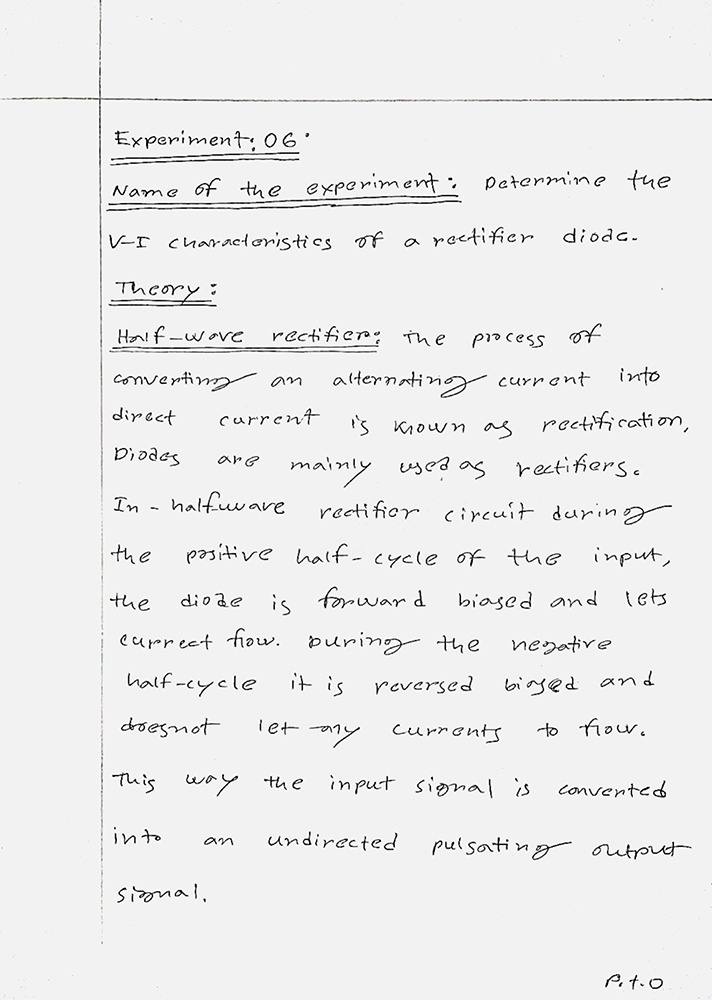 Experiment: 06
Name of the experiment: Determine the
V-I characteristics of a rectifier diode.
Theory:
Half-wave rectifier: The process of
converting an alternating current into
direct current is known as rectification,
Diodes are mainly used as rectifiers.
In - halfwave rectifier circuit during
the positive half-cycle of the input,
the diode is forward biased and lets
currect flow. During the negative
half-cycle it is reversed biased and
doesnot let any currents to flow.
This way the input signal is converted
into an undirected pulsating output
signal.
P.t.O